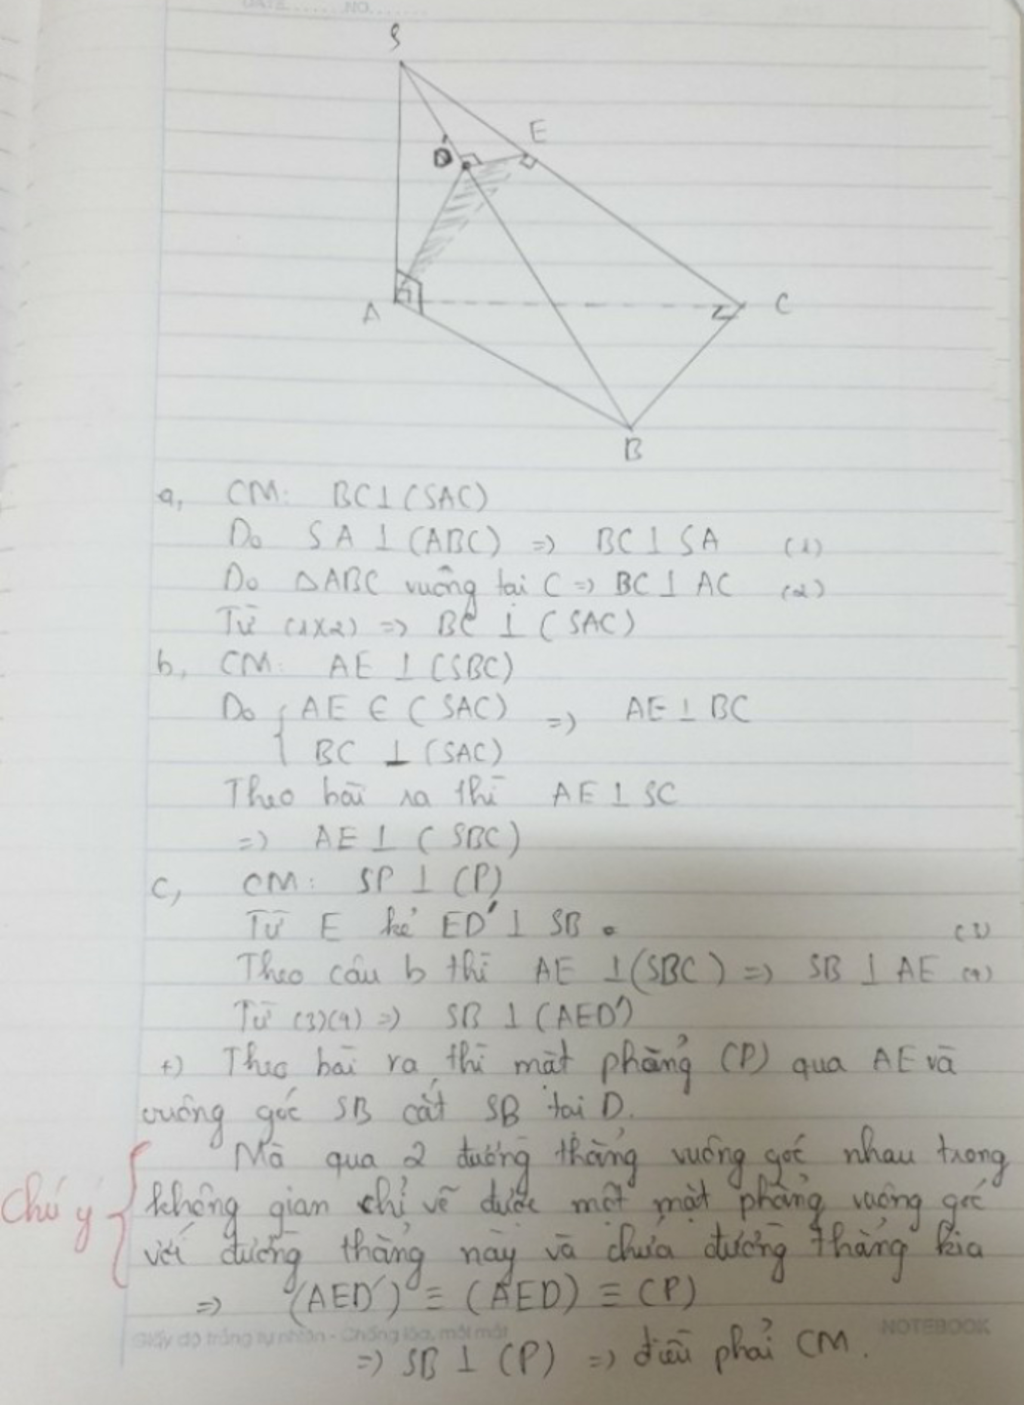 DATE........NO........
S
E
D'
A
C
B
a, CM: BC⊥(SAC)
Do SA⊥(ABC) => BC⊥SA (1)
Do △ABC vuông tại C => BC⊥AC (2)
Từ (1)(2) => BC ⊥ (SAC)
b, CM: AE ⊥(SBC)
Do { AE ∈ (SAC) => AE⊥BC
BC ⊥ (SAC)
Theo bài ra thì AE⊥SC
=> AE⊥ (SBC)
c, CM: SP ⊥ (P)
Từ E kẻ ED' ⊥ SB.
Theo câu b thì AE ⊥(SBC) => SB ⊥ AE (4)
Từ (3)(4) => SB ⊥(AED')
+) Theo bài ra thì mặt phẳng (P) qua AE và
vuông góc SB cắt SB tại D.
Mà qua 2 đường thẳng vuông góc nhau trong
Chú ý
không gian chỉ vẽ được một mặt phẳng vuông góc
với đường thẳng này và chứa đường thẳng kia
=> (AED') ≡ (AED) ≡ (P)
Giấy độ trắng tự nhiên - Chống lóa, mỏi mắt NOTEBOOK
=> SB ⊥ (P) => điều phải CM.